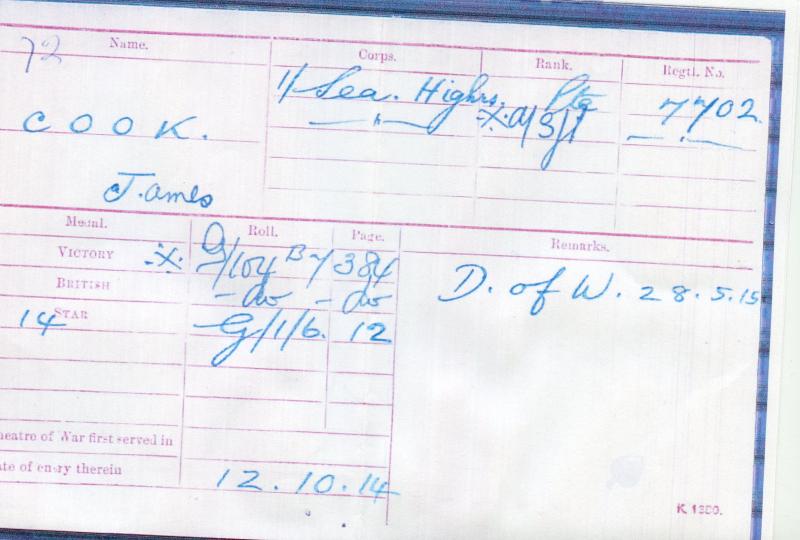 72 Name. Corps. Rank. Regtl. No.
1/ Sea. Highrs. Pte 7702.
COOK. — " — ※ A/Sjt — " —
James
Medal. Roll. Page. Remarks.
VICTORY ※ 104 B 384
BRITISH - do - do D. of W. 28.5.15
14 STAR G/1/6. 12
heatre of War first served in
ate of entry therein 12.10.14
K. 1380.